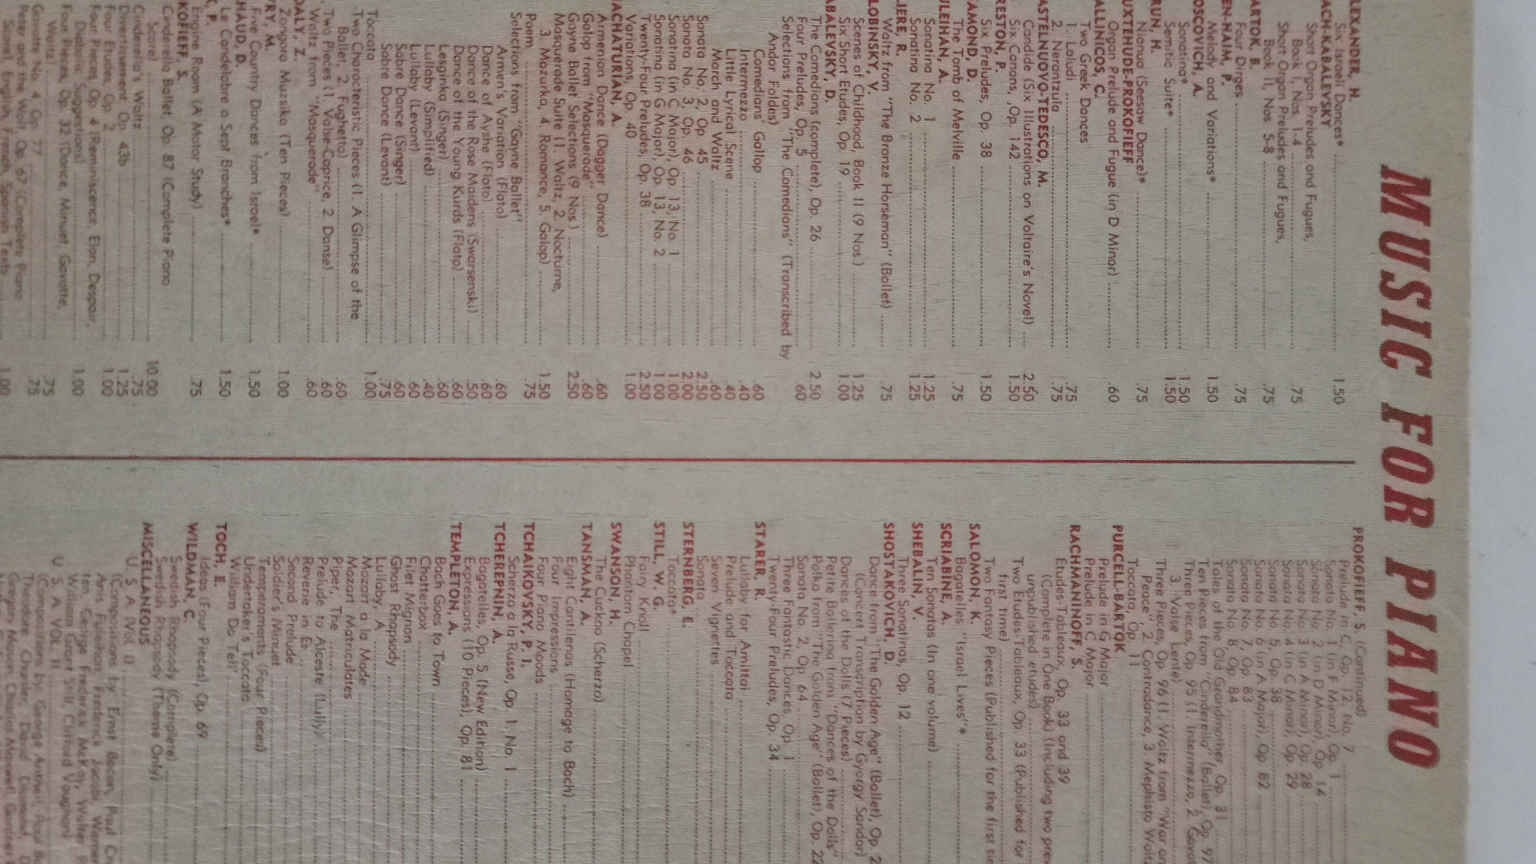 MUSIC FOR PIANO
LEXANDER, H.
Six Israel Dances* 1.50
ACH-KABALEVSKY
Short Organ Preludes and Fugues,
Book I, Nos. 1-4 .75
Short Organ Preludes and Fugues,
Book II, Nos. 5-8 .75
ARTOK, B.
Four Dirges .75
EN-HAIM, P.
Melody and Variations* 1.50
OSCOVICH, A.
Sonatina* 1.50
Semitic Suite* 1.50
RUN, H.
Nianua (Seesaw Dance)* .75
UXTEHUDE-PROKOFIEFF
Organ Prelude and Fugue (in D Minor) .60
ALLINICOS, C.
Two Greek Dances
1. Laludi .75
2. Nerantzula .75
ASTELNUOVO-TEDESCO, M.
Candide (Six Illustrations on Voltaire's Novel) 2.50
RESTON, P.
Six Canons, Op. 142 1.50
AMOND, D.
Six Preludes, Op. 38 1.50
The Tomb of Melville .75
ULEIHAN, A.
Sonatina No. 1 1.25
Sonatina No. 2 1.25
IERE, R.
Waltz from "The Bronze Horseman" (Ballet) .75
LOBINSKY, V.
Scenes of Childhood, Book II (9 Nos.) 1.25
Six Short Etudes, Op. 19 1.00
ABALEVSKY, D.
The Comedians (complete), Op. 26 2.50
Four Preludes, Op. 5 .60
Selections from "The Comedians" (Transcribed by
Andor Foldes)
Comedians' Gallop .60
Intermezzo .40
Little Lyrical Scene .40
March and Waltz .60
Sonata No. 2, Op. 45 2.50
Sonata No. 3, Op. 46 2.00
Sonatina (in C Major), Op. 13, No. 1 1.00
Sonatina (in G Major), Op. 13, No. 2 1.00
Twenty-Four Preludes, Op. 38 2.50
Variations, Op. 40 1.00
ACHATURIAN, A.
Armenian Dance (Dagger Dance) .60
Galop from "Masquerade" .60
Gayne Ballet Selections (9 Nos.) 2.50
Masquerade Suite (1. Waltz, 2. Nocturne,
3. Mazurka, 4. Romance, 5. Galop) 1.50
Poem .75
Selections from "Gayne Ballet"
Armen's Variation (Flato) .60
Dance of Ayshe (Flato) .60
Dance of the Rose Maidens (Swarsenski) .50
Dance of the Young Kurds (Flato) .60
Lesginka (Singer) .60
Lullaby (Simplified) .40
Lullaby (Levant) .60
Sabre Dance (Singer) .60
Sabre Dance (Levant) .75
Toccata 1.00
Two Characteristic Pieces (1. A Glimpse of the
Ballet, 2. Fughetta) .60
Two Pieces (1. Valse-Caprice, 2. Danse) .60
Waltz from "Masquerade" .60
DALY, Z.
Zongora Muzsika (Ten Pieces) 1.00
RY, M.
Five Country Dances from Israel* 1.50
HAUD, D.
Le Candelabre a Sept Branches* 1.50
, P.
Engine Room (A Motor Study) .75
KOFIEFF, S.
Cinderella Ballet, Op. 87 (Complete Piano
Score) 10.00
Cinderella's Waltz .75
Divertissement Op. 43b 1.25
Four Etudes, Op. 2 1.00
Four Pieces, Op. 4 (Reminiscence, Elan, Despair,
Diabolic Suggestions) 1.00
Four Pieces, Op. 32 (Dance, Minuet, Gavotte,
Waltz) .75
Gavotte No. 4, Op. 77 .75
Peter and the Wolf, Op. 67 (Complete Piano
Score), English, French, Spanish Texts 1.00
PROKOFIEFF, S. (Continued)
Prelude in C, Op. 12, No. 7
Sonata No. 1 (in F Minor), Op. 1
Sonata No. 2 (in D Minor), Op. 14
Sonata No. 3 (in A Minor), Op. 28
Sonata No. 4 (in C Minor), Op. 29
Sonata No. 5, Op. 38
Sonata No. 6 (in A Major), Op. 82
Sonata No. 7, Op. 83
Sonata No. 8, Op. 84
Tales of the Old Grandmother, Op. 31
Ten Pieces from "Cinderella" (Ballet), Op. 97
Three Pieces, Op. 95 (1. Intermezzo, 2. Gavo
3. Valse Lente)
Three Pieces, Op. 96 (1. Waltz from "War an
Peace", 2. Contradance, 3. Mephisto Waltz
Toccata, Op. 11
PURCELL-BARTOK
Prelude in G Major
Prelude in C Major
RACHMANINOFF, S.
Etudes Tableaux, Op. 33 and 39
(Complete in One Book) (Including two prev
unpublished etudes)
Two Etudes Tableaux, Op. 33 (Published for
first time)
Two Fantasy Pieces (Published for the first tim
SALOMON, K.
Bagatelles "Israel Lives"*
SCRIABINE, A.
Ten Sonatas (In one volume)
SHEBALIN, V.
Three Sonatinas, Op. 12
SHOSTAKOVICH, D.
Dance from "The Golden Age" (Ballet), Op. 2
(Concert Transcription by Gyorgy Sandor)
Dances of the Dolls (7 Pieces)
Petite Ballerina from "Dances of the Dolls"
Polka from "The Golden Age" (Ballet), Op. 22
Sonata No. 2, Op. 64
Three Fantastic Dances, Op. 1
Twenty-Four Preludes, Op. 34
STARER, R.
Lullaby for Amittai
Prelude and Toccata
Seven Vignettes
Sonata
STERNBERG, E.
Toccata
STILL, W. G.
Fairy Knoll
Phantom Chapel
SWANSON, H.
The Cuckoo (Scherzo)
TANSMAN, A.
Eight Cantilenas (Homage to Bach)
Four Impressions
Four Piano Moods
TCHAIKOVSKY, P. I.
Scherzo a la Russe, Op. 1, No. 1
TCHEREPNIN, A.
Bagatelles, Op. 5 (New Edition)
Expressions (10 Pieces), Op. 81
TEMPLETON, A.
Bach Goes to Town
Chatterbox
Filet Mignon
Ghost Rhapsody
Lullaby, A
Mozart a la Mode
Mozart Matriculates
Piper, The
Prelude to Alceste (Lully)
Reverie in E♭
Second Prelude
Soldier's Minuet
Temperaments (Four Pieces)
Undertaker's Toccata
William Do Tell!
TOCH, E.
Ideas (Four Pieces), Op. 69
WILDMAN, C.
Swedish Rhapsody (Complete)
Swedish Rhapsody (Theme Only)
MISCELLANEOUS
U. S. A. (Vol. I)
(Compositions by Ernst Bacon, Paul Cr
U. S. A. VOL. II